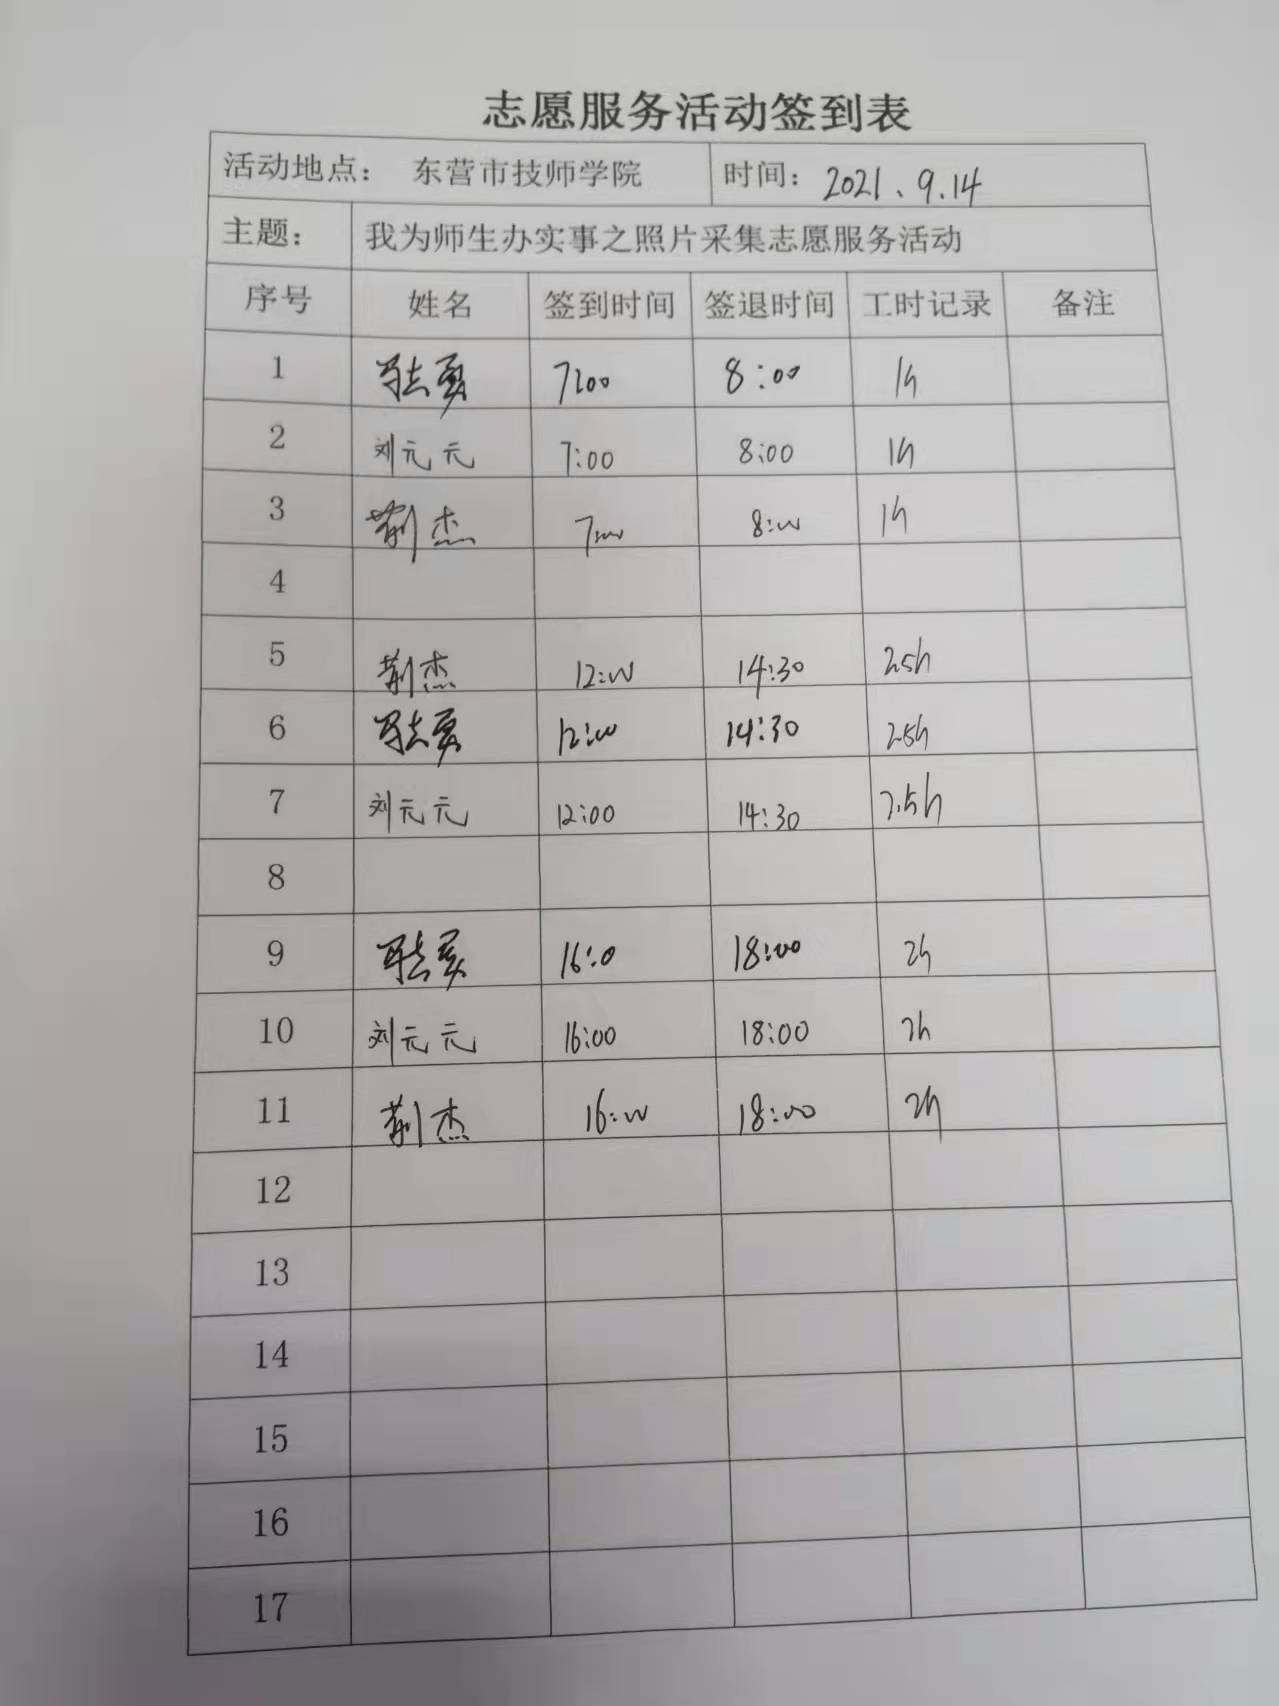 志愿服务活动签到表
活动地点： 东营市技师学院 时间：2021、9.14
主题： 我为师生办实事之照片采集志愿服务活动
序号 姓名 签到时间 签退时间 工时记录 备注
1 7:00 8:00 1h
2 刘元元 7:00 8:00 1h
3 荆杰 7:00 8:00 1h
4
5 荆杰 12:00 14:30 2.5h
6 12:00 14:30 2.5h
7 刘元元 12:00 14:30 2.5h
8
9 16:0 18:00 2h
10 刘元元 16:00 18:00 2h
11 荆杰 16:00 18:00 2h
12
13
14
15
16
17